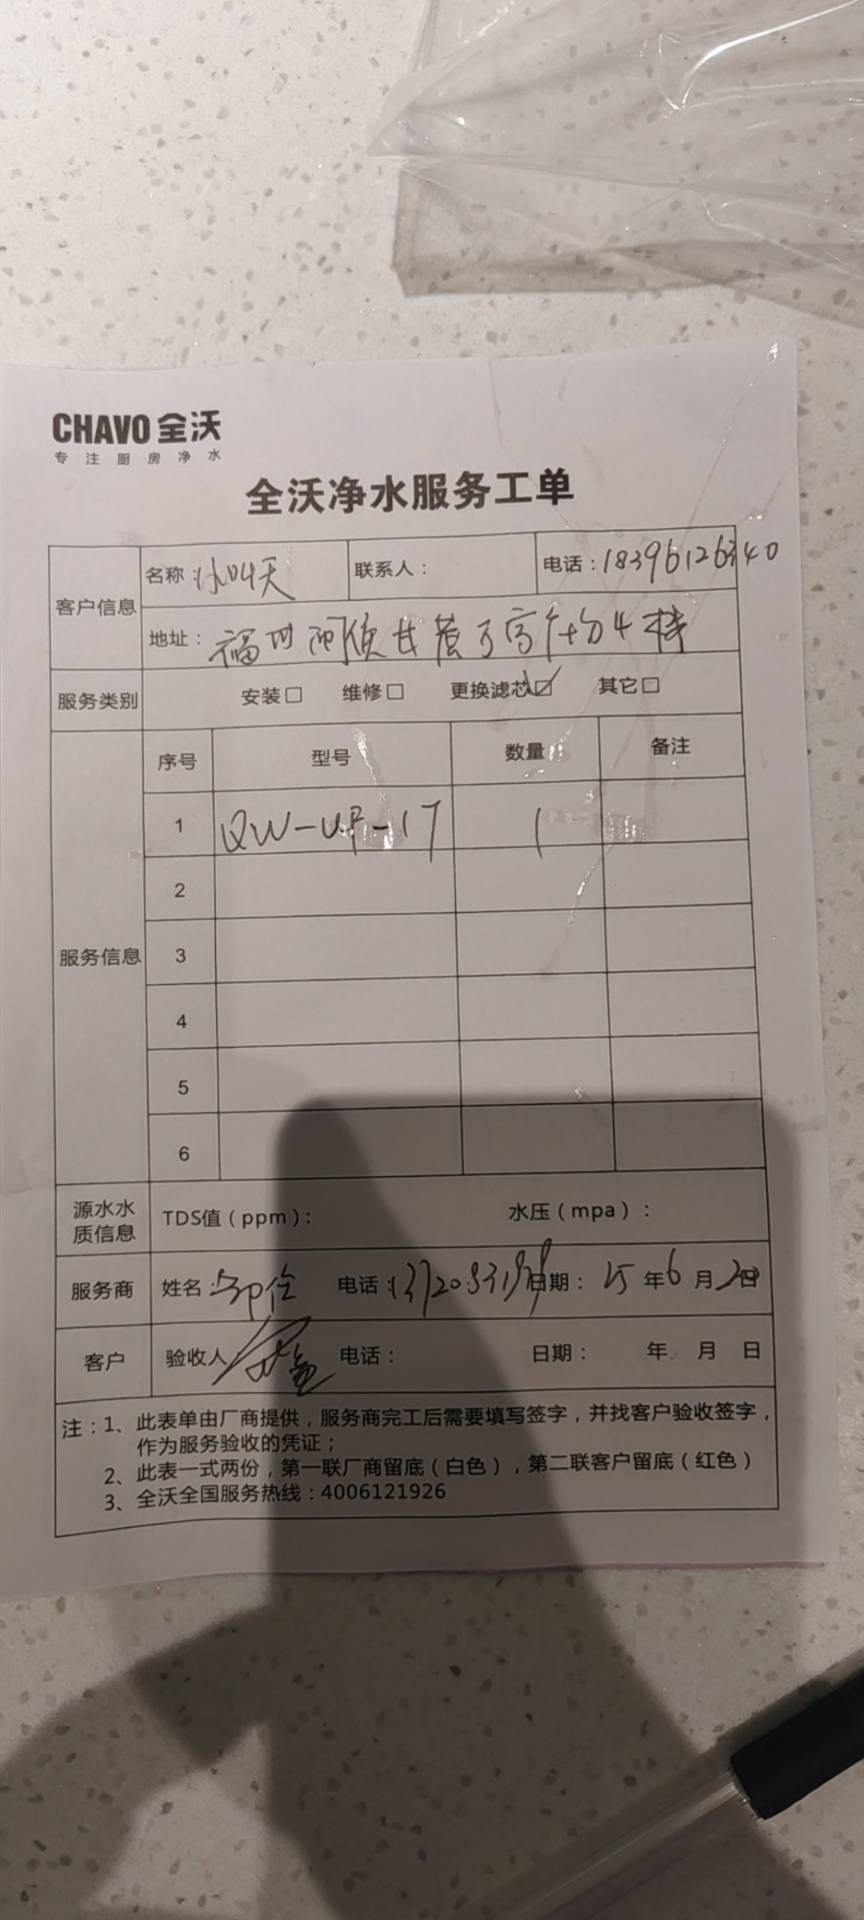 CHAVO 全沃
专注厨房净水
全沃净水服务工单
客户信息
名称：小叫天 联系人： 电话：18396126340
地址：福州 4栋
服务类别 安装□ 维修□ 更换滤芯☑ 其它□
服务信息
序号 型号 数量 备注
1 QW-UF-17 1
2
3
4
5
6
源水水质信息 TDS值（ppm）： 水压（mpa）：
服务商 姓名： 电话： 日期：25年6月2日
客户 验收人 电话： 日期： 年 月 日
注：1、此表单由厂商提供，服务商完工后需要填写签字，并找客户验收签字，
作为服务验收的凭证；
2、此表一式两份，第一联厂商留底（白色），第二联客户留底（红色）
3、全沃全国服务热线：4006121926